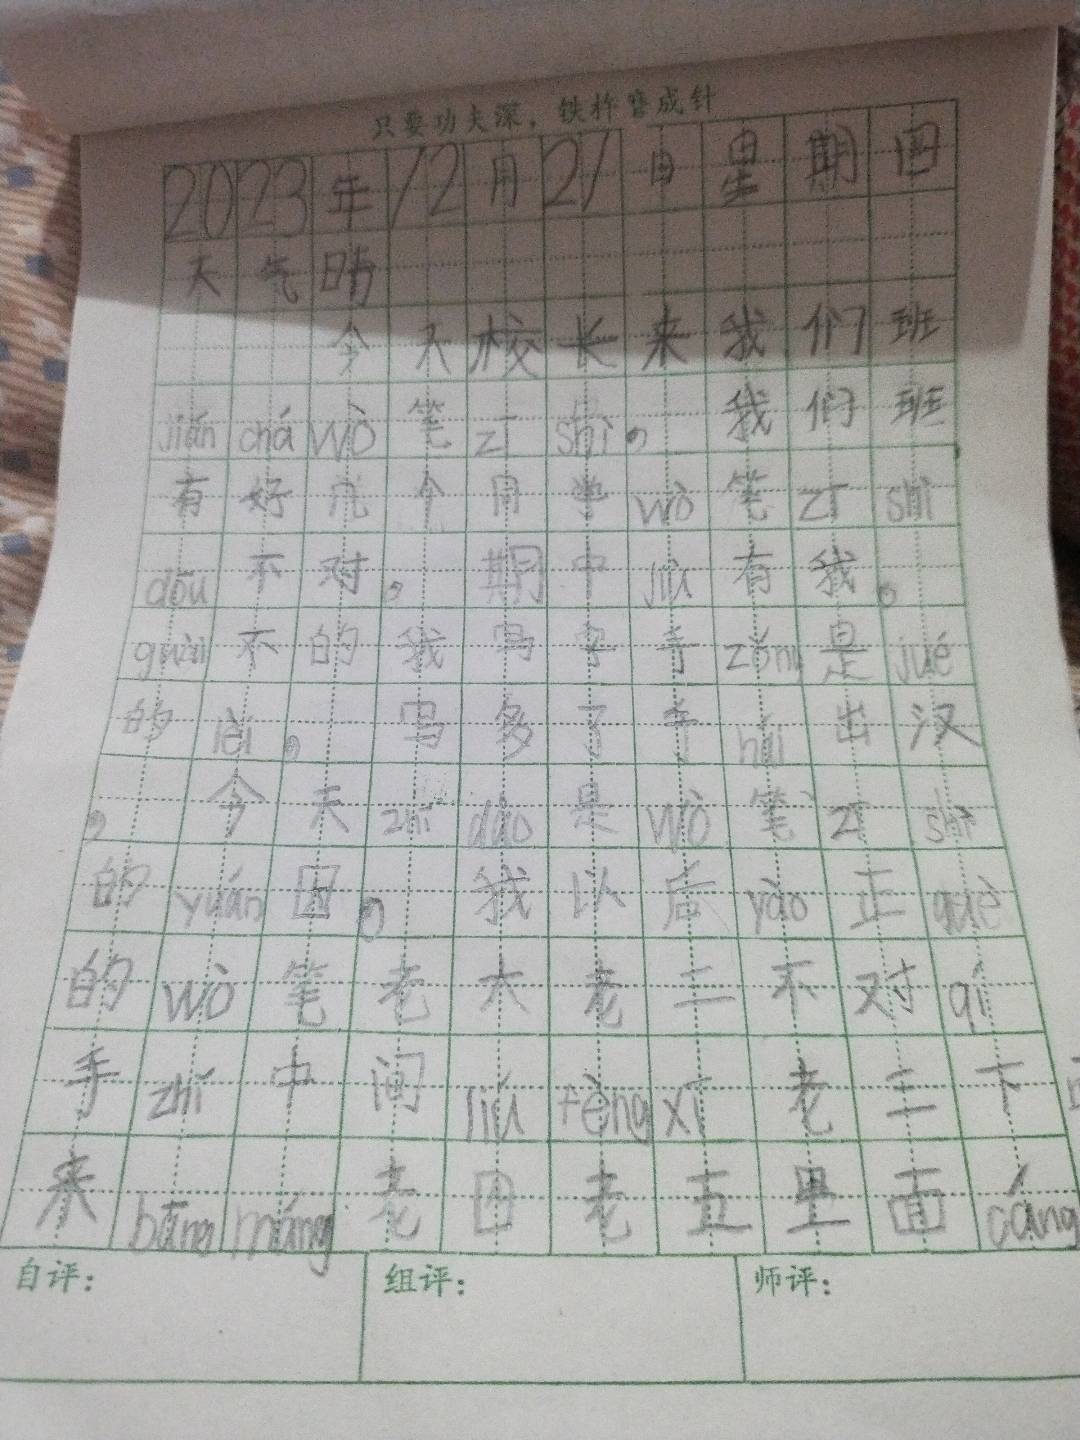 只要功夫深，铁杵磨成针
2023年12月21日星期四
天气晴
今天校长来我们班
jiǎn chá wò 笔 zī shì。我们班
有好几个同学 wò 笔 zī shì
dōu 不对。期中 jiù 有我。
guài 不的我写字手 zǒng 是 jué
的 lèi。写多了手 huì 出汉
。今天 zhī dào 是 wò 笔 zī shì
的 yuán 因。我以后 yào 正 què
的 wò 笔老大老二不对 qí
手 zhǐ 中间 liú fèng xì 老三下
来 bāng máng 老四老五里面 cáng
自评： 组评： 师评：